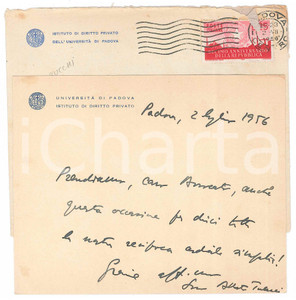 ISTITUTO DI DIRITTO PRIVATO
DELL'UNIVERSITÀ DI PADOVA
PADOVA
UNIVERSITÀ DI PADOVA
ISTITUTO DI DIRITTO PRIVATO
Padova, 2 luglio 1956
Prendiamo, caro Avvocato, anche
questa occasione per dirci tutta
la nostra reciproca cordiale simpatia!
Grazie
Suo Alberto Trabucchi
iCharta